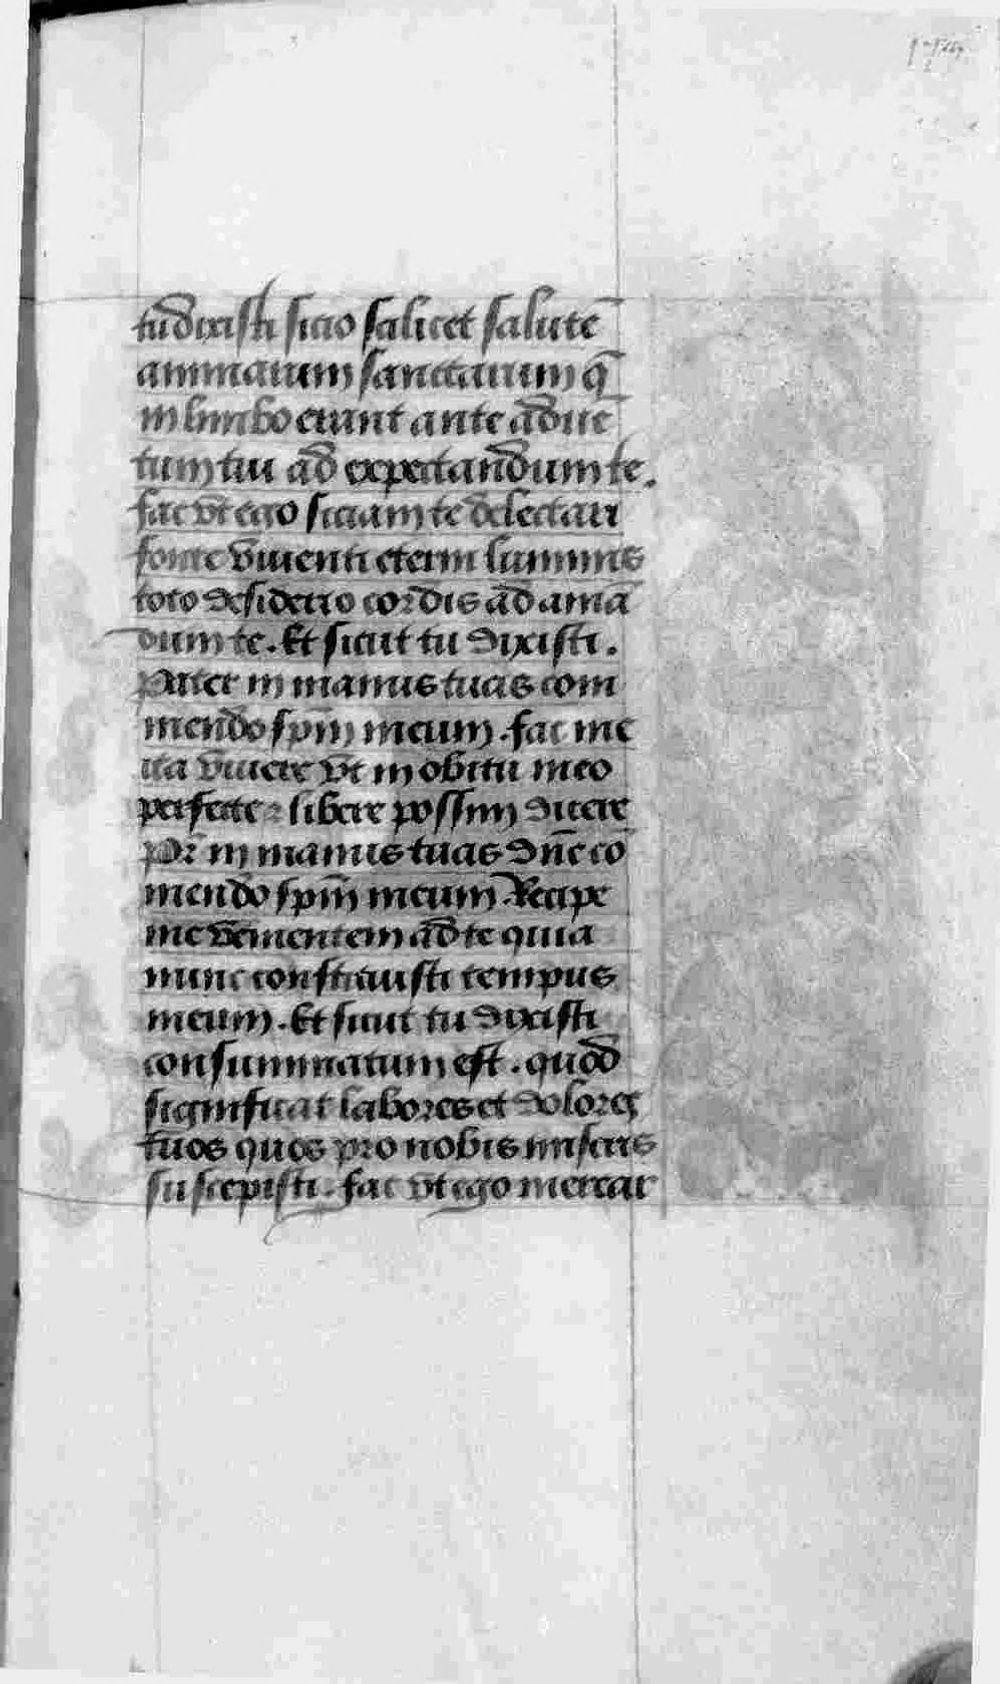 tu dixisti sicio scilicet salutē
animarum sanctarum q̄
in limbo erant ante aduē
tum tui ad expectandum te.
fac vt ego siciam te delectari
fonte viuenti eterni luminis
toto desiderio cordis ad amā
dum te. Et sicut tu dixisti.
Pater in manus tuas com
mendo spm̄ meum. fac me
ita viuere vt in obitu meo
perfecte ⁊ libere possim dicere
pr̄ in manus tuas dn̄e cō
mendo spm̄ meum. Recipe
me venientem ad te quia
nunc constituisti tempus
meum. Et sicut tu dixisti
consummatum est. quod
significat labores et dolores
tuos quos pro nobis miseris
suscepisti. fac vt ego merear